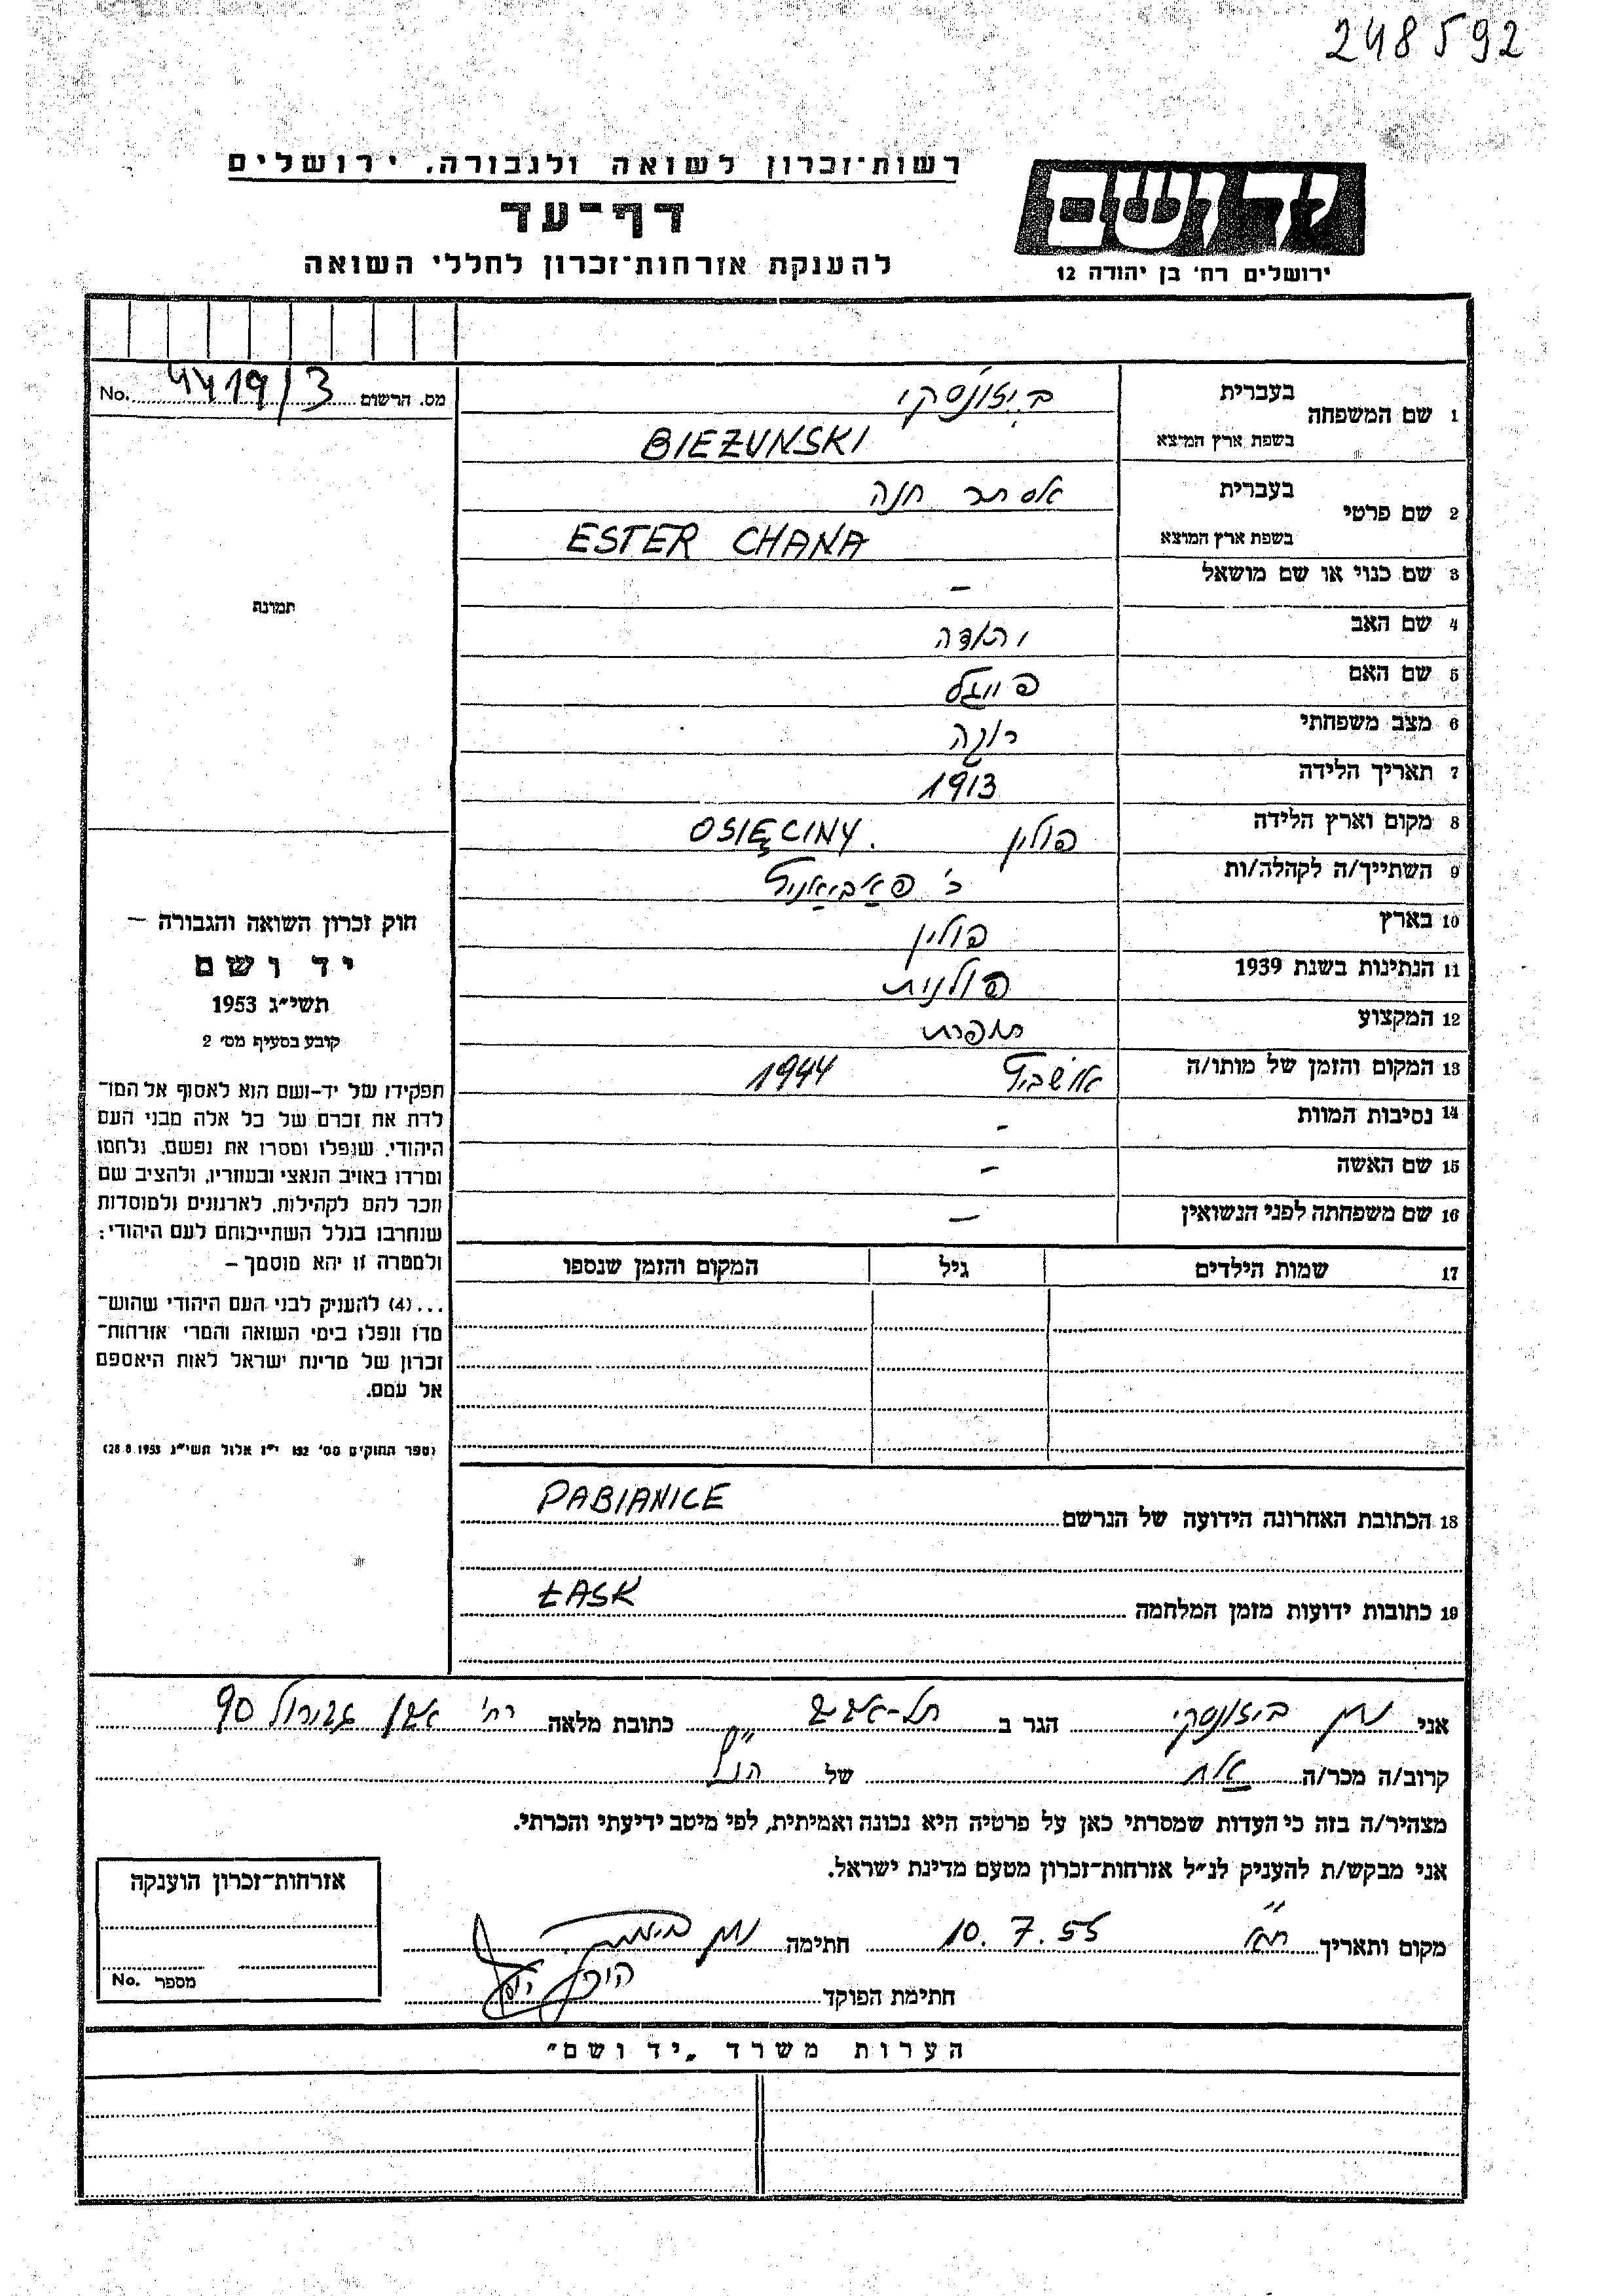 248592
רשות־זכרון לשואה ולגבורה, ירושלים
דף־עד
להענקת אזרחות־זכרון לחללי השואה
יד ושם
ירושלים רח' בן יהודה 12
מס. הרשום 4419/3 No.
1 שם המשפחה
בעברית ביזונסקי
בשפת ארץ המוצא BIEŻUNSKI
2 שם פרטי
בעברית אסתר חנה
בשפת ארץ המוצא ESTER CHANA
3 שם כנוי או שם מושאל –
4 שם האב
5 שם האם פייגל
6 מצב משפחתי רווקה
7 תאריך הלידה 1913
8 מקום וארץ הלידה פולין OSIĘCINY.
9 השתייך/ה לקהלה/ות ק' פאביאניץ
10 בארץ פולין
11 הנתינות בשנת 1939 פולנית
12 המקצוע תופרת
13 המקום והזמן של מותו/ה אושביץ 1944
14 נסיבות המוות –
15 שם האשה –
16 שם משפחתה לפני הנשואין –
17 שמות הילדים גיל המקום והזמן שנספו
תמונה
חוק זכרון השואה והגבורה –
יד ושם
תשי״ג 1953
קובע בסעיף מס' 2
תפקידו של יד-ושם הוא לאסוף אל המו־
לדת את זכרם של כל אלה מבני העם
היהודי, שנפלו ומסרו את נפשם, נלחמו
ומרדו באויב הנאצי ובעוזריו, ולהציב שם
וזכר להם לקהילות, לארגונים ולמוסדות
שנחרבו בגלל השתייכותם לעם היהודי;
ולמטרה זו יהא מוסמך –
...(4) להעניק לבני העם היהודי שהוש־
מדו ונפלו בימי השואה והמרי אזרחות־
זכרון של מדינת ישראל לאות היאספם
אל עמם.
(ספר החוקים מס' 132 י״ז אלול תשי״ג 28.8.1953)
18 הכתובת האחרונה הידועה של הנרשם PABIANICE
19 כתובות ידועות מזמן המלחמה ŁASK
אני נתן ביזונסקי הגר ב תל-אביב כתובת מלאה רח' אבן גבירול 90
קרוב/ה מכר/ה אח של הנ״ל
מצהיר/ה בזה כי העדות שמסרתי כאן על פרטיה היא נכונה ואמיתית, לפי מיטב ידיעתי והכרתי.
אני מבקש/ת להעניק לנ״ל אזרחות־זכרון מטעם מדינת ישראל.
מקום ותאריך ת״א 10.7.55 חתימה נתן
חתימת הפוקד
אזרחות־זכרון הוענקה
מספר No.
הערות משרד „יד ושם״